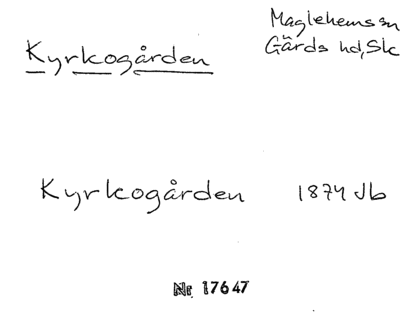 Kyrkogården
Maglehems sn
Gärds hd, Sk
Kyrkogården 1874 Jb
Nr 17647